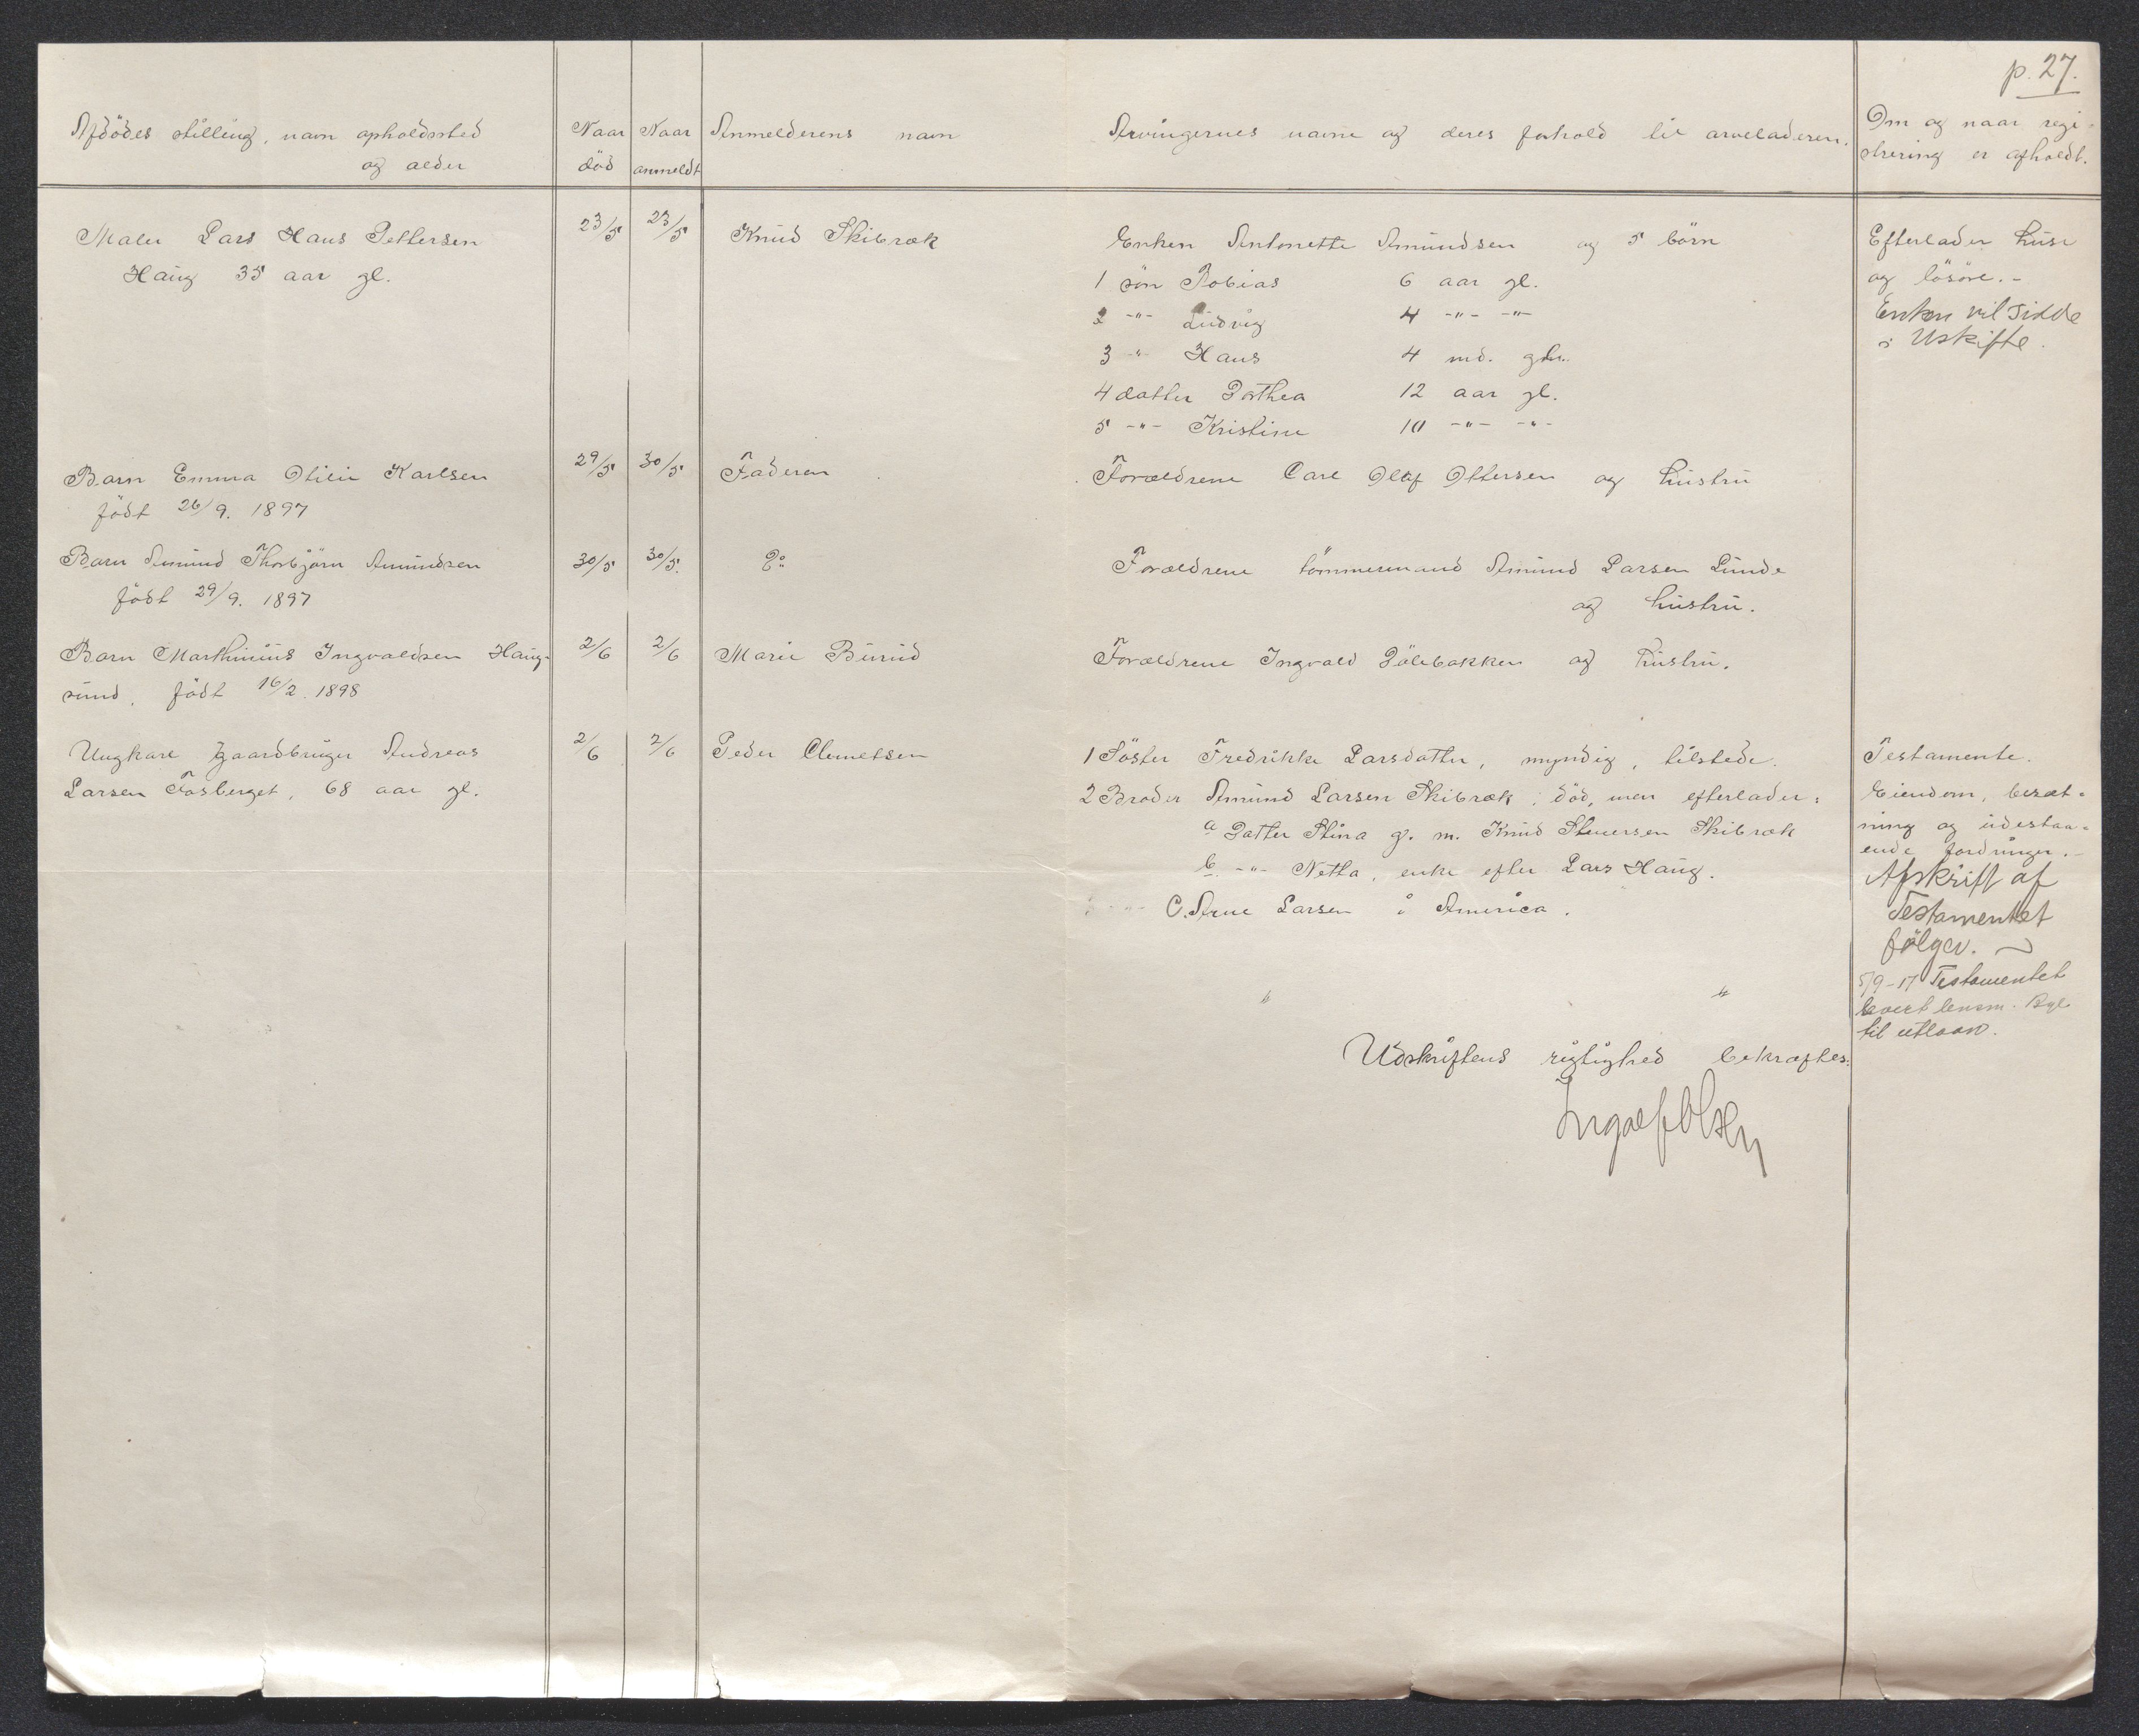 p. 27.
Afdödes stilling, navn opholdssted
og alder
Naar
död
Naar
anmeldt
Anmelderens navn
Arvingernes navne og deres forhold til arveladeren.
Om og naar regi-
strering er afholdt.
Maler Lars Hans Pettersen
Haug 35 aar gl.
23/5
23/5
Knud Skibræk
Enken Antonette Amundsen og 5 börn
1 sön Tobias 6 aar gl.
2 -"- Ludvig 4 -"- -"-
3 -"- Hans 4 md. gl.
4 datter Dorthea 12 aar gl.
5 -"- Kristine 10 -"- -"-
Efterlader huse
og lösöre.-
Enken vil sidde
i Uskifte.
Barn Emma Otilie Karlsen
födt 26/9. 1897
29/5
30/5
Faderen
Forældrene Carl Olaf Ottersen og hustru
Barn Amund Thorbjörn Amundsen
födt 29/9. 1897
30/5
30/5.
Do
Forældrene tömmermand Amund Larsen Lunde
og hustru.
Barn Marthinius Ingvaldsen Haug-
sund, födt 16/2. 1898
2/6
2/6
Marie Burud
Forældrene Ingvald Dölebakken og hustru.
Ungkarl gaardbruger Andreas
Larsen Fosberget, 68 aar gl.
2/6
2/6
Peder Clemetsen
1 Söster Fredrikke Larsdatter, myndig, tilstede.
2 Broder Amund Larsen Skibræk, död, men efterlader:
a Datter Stina g. m. Knud Steversen Skibræk
b. -"- Netta, enke efter Lars Haug.
C. Arne Larsen i America.
Testamente.
Eiendom, besæt-
ning og udestaa-
ende fordringer.-
Afskrift af
Testamentet
fölger.
5/9-17 Testamentet
levert lensm.
til utlaan.
" "
Udskriftens rigtighed bekræftes:
Ingolf Olsen